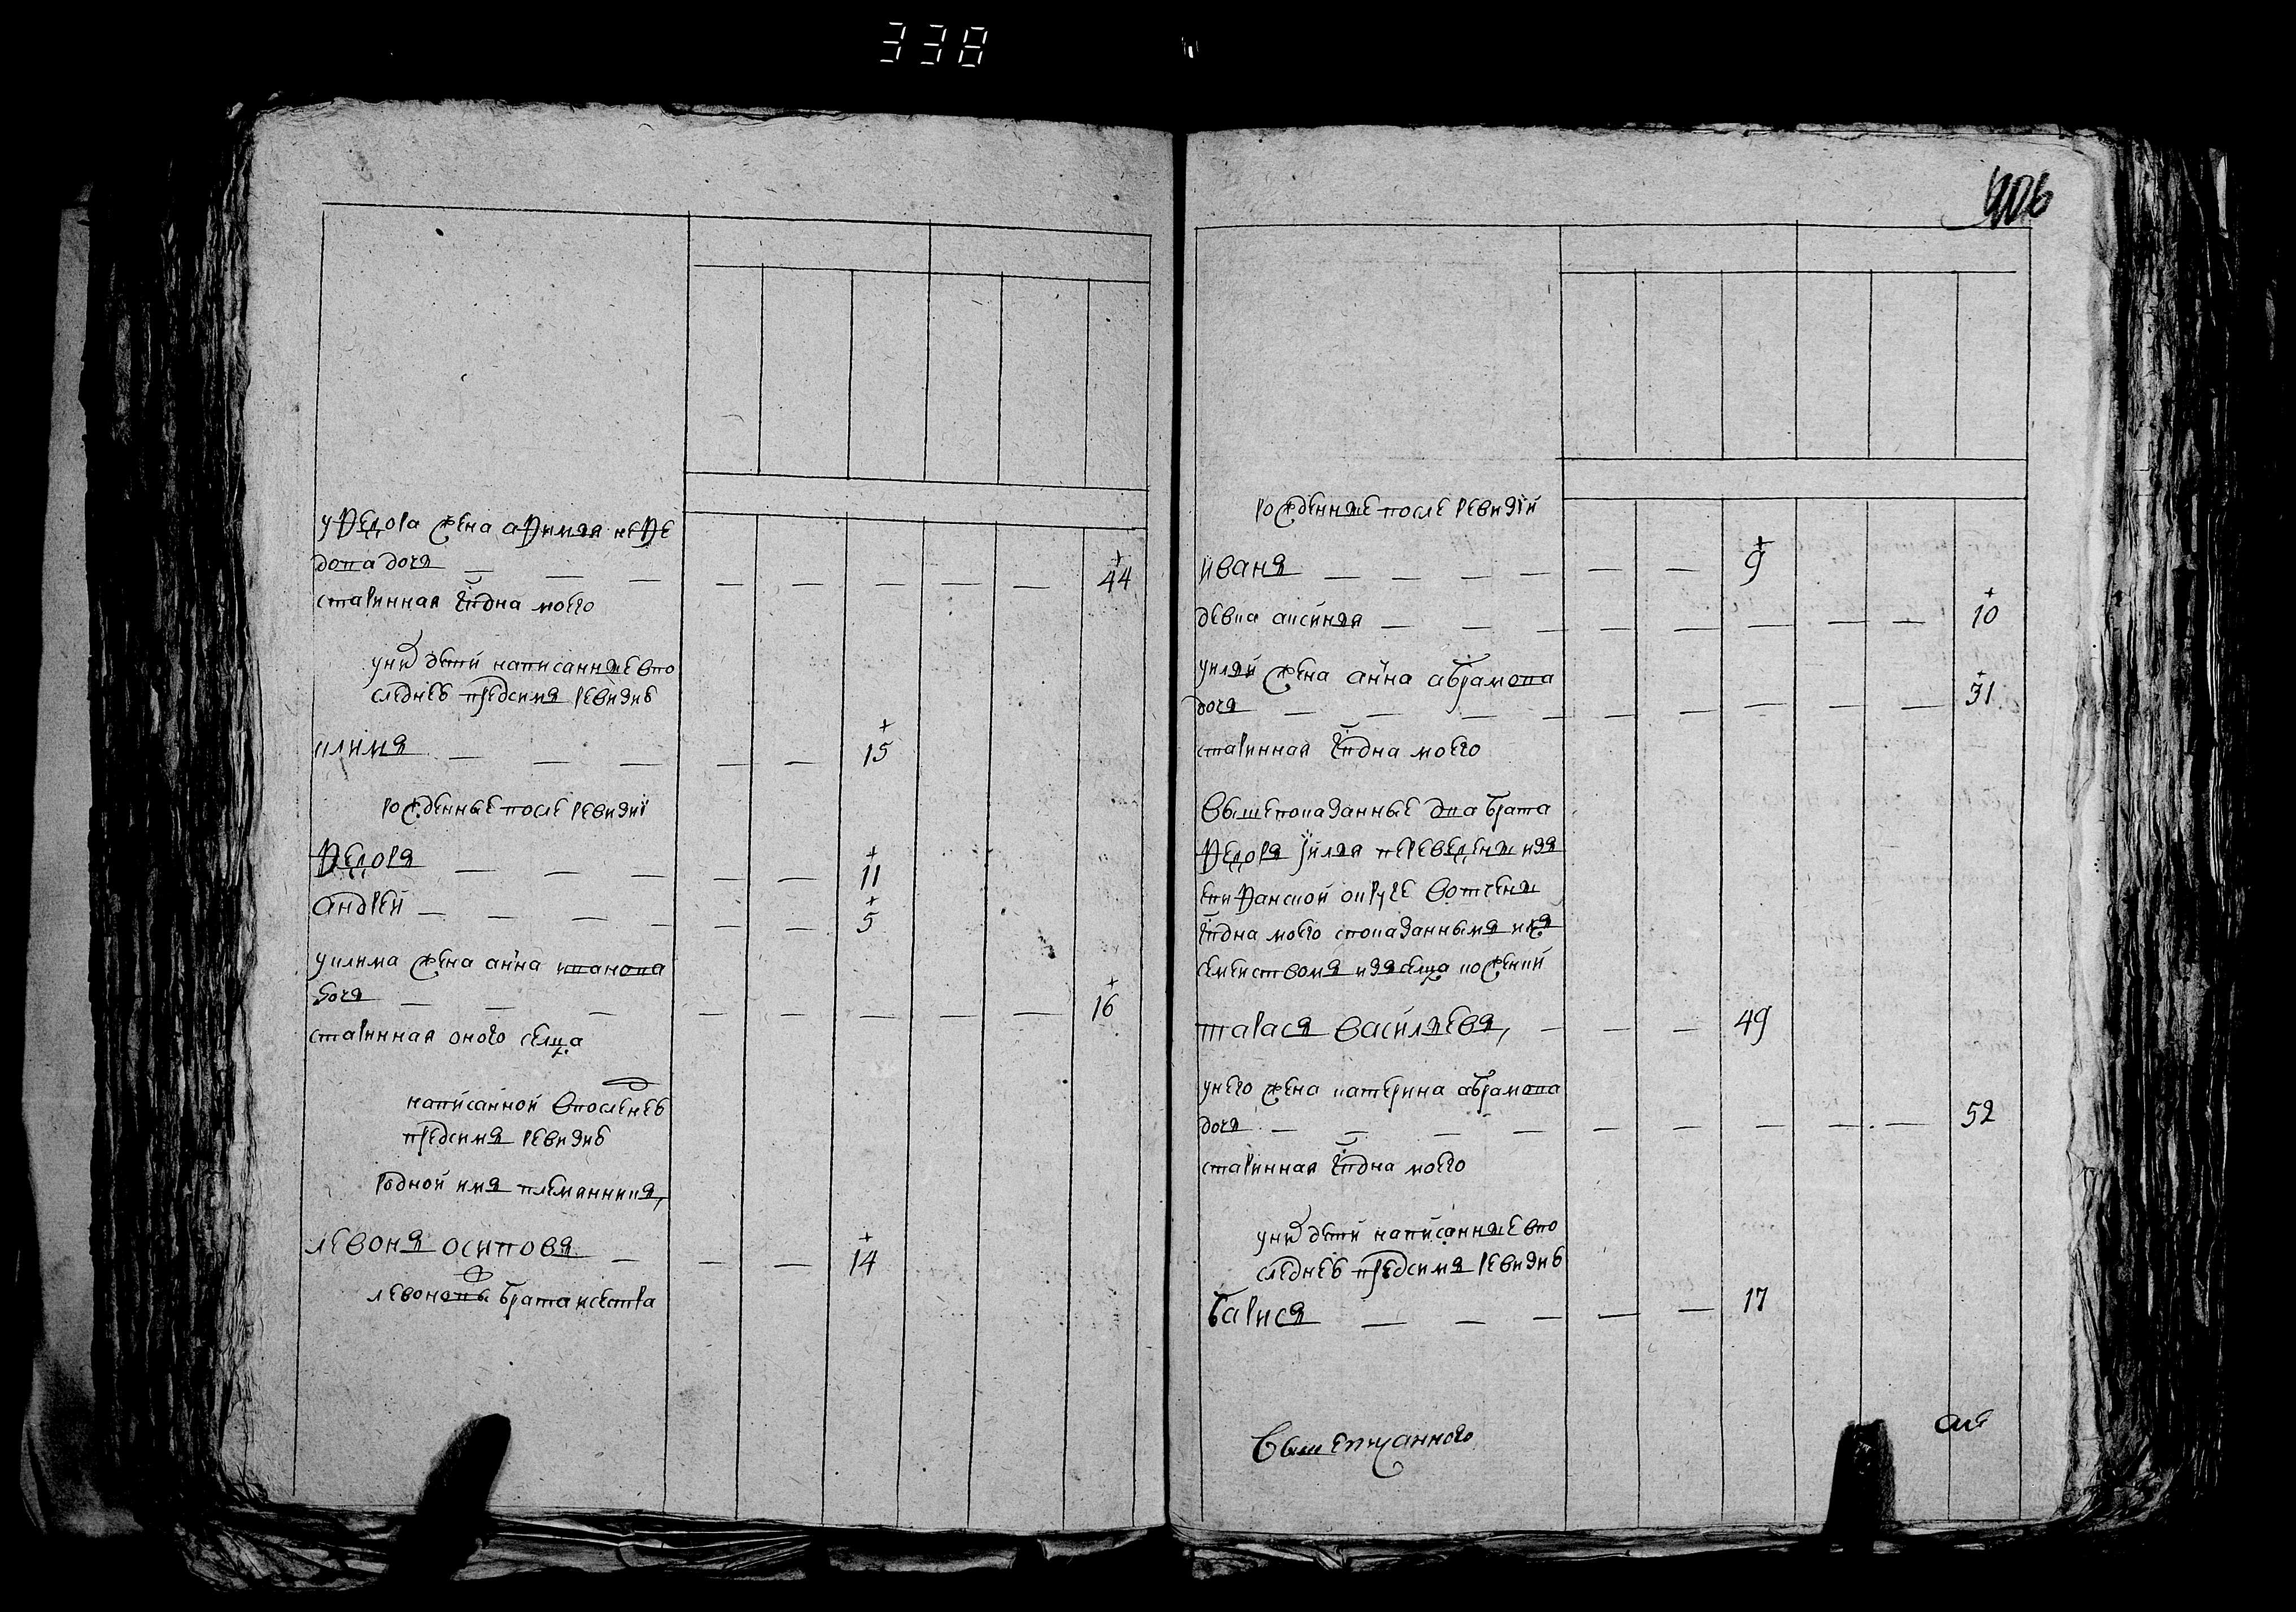 338
906
уѲедора жена аѲимья неѲе
дова дочь — — — — — — — — 44
старинная гпдна моего
уних дети написанные впо
следнеѣ предсимъ ревизиѣ
климъ — — — — — 15
рожденные после ревизиї
Ѳедоръ — — — — — 11
андреи — — — — — — 5
уклима жена анна иванова
дочь — — — — — — — — 16
старинная оного селца
написанной впосленеѣ
предсимъ ревизиѣ
родной имъ племянникъ,
левонъ осиповъ — — — 14
левоновы брата исестра
рожденные после ревизїи
иванъ — — — — — — 9
девка аксинья — — — — — — — — 10
уилїи жена анна абрамова
дочь — — — — — — — — — 31
старинная гпдна моего
вышепоказанные два брата
Ѳедоръ їилья переведены изъ
епиѲанской округе вотчены
гпдна моего спомазаннымъ ихъ
семеиствомъ изъселца
тарасъ васильевъ, — — — 49
унего жена катерина абрамова
дочь — — — — — — — — — 52
старинная гпдна моего
уних дети написанные впо
следнеѣ предсимъ ревизиѣ
барисъ — — — — — 17